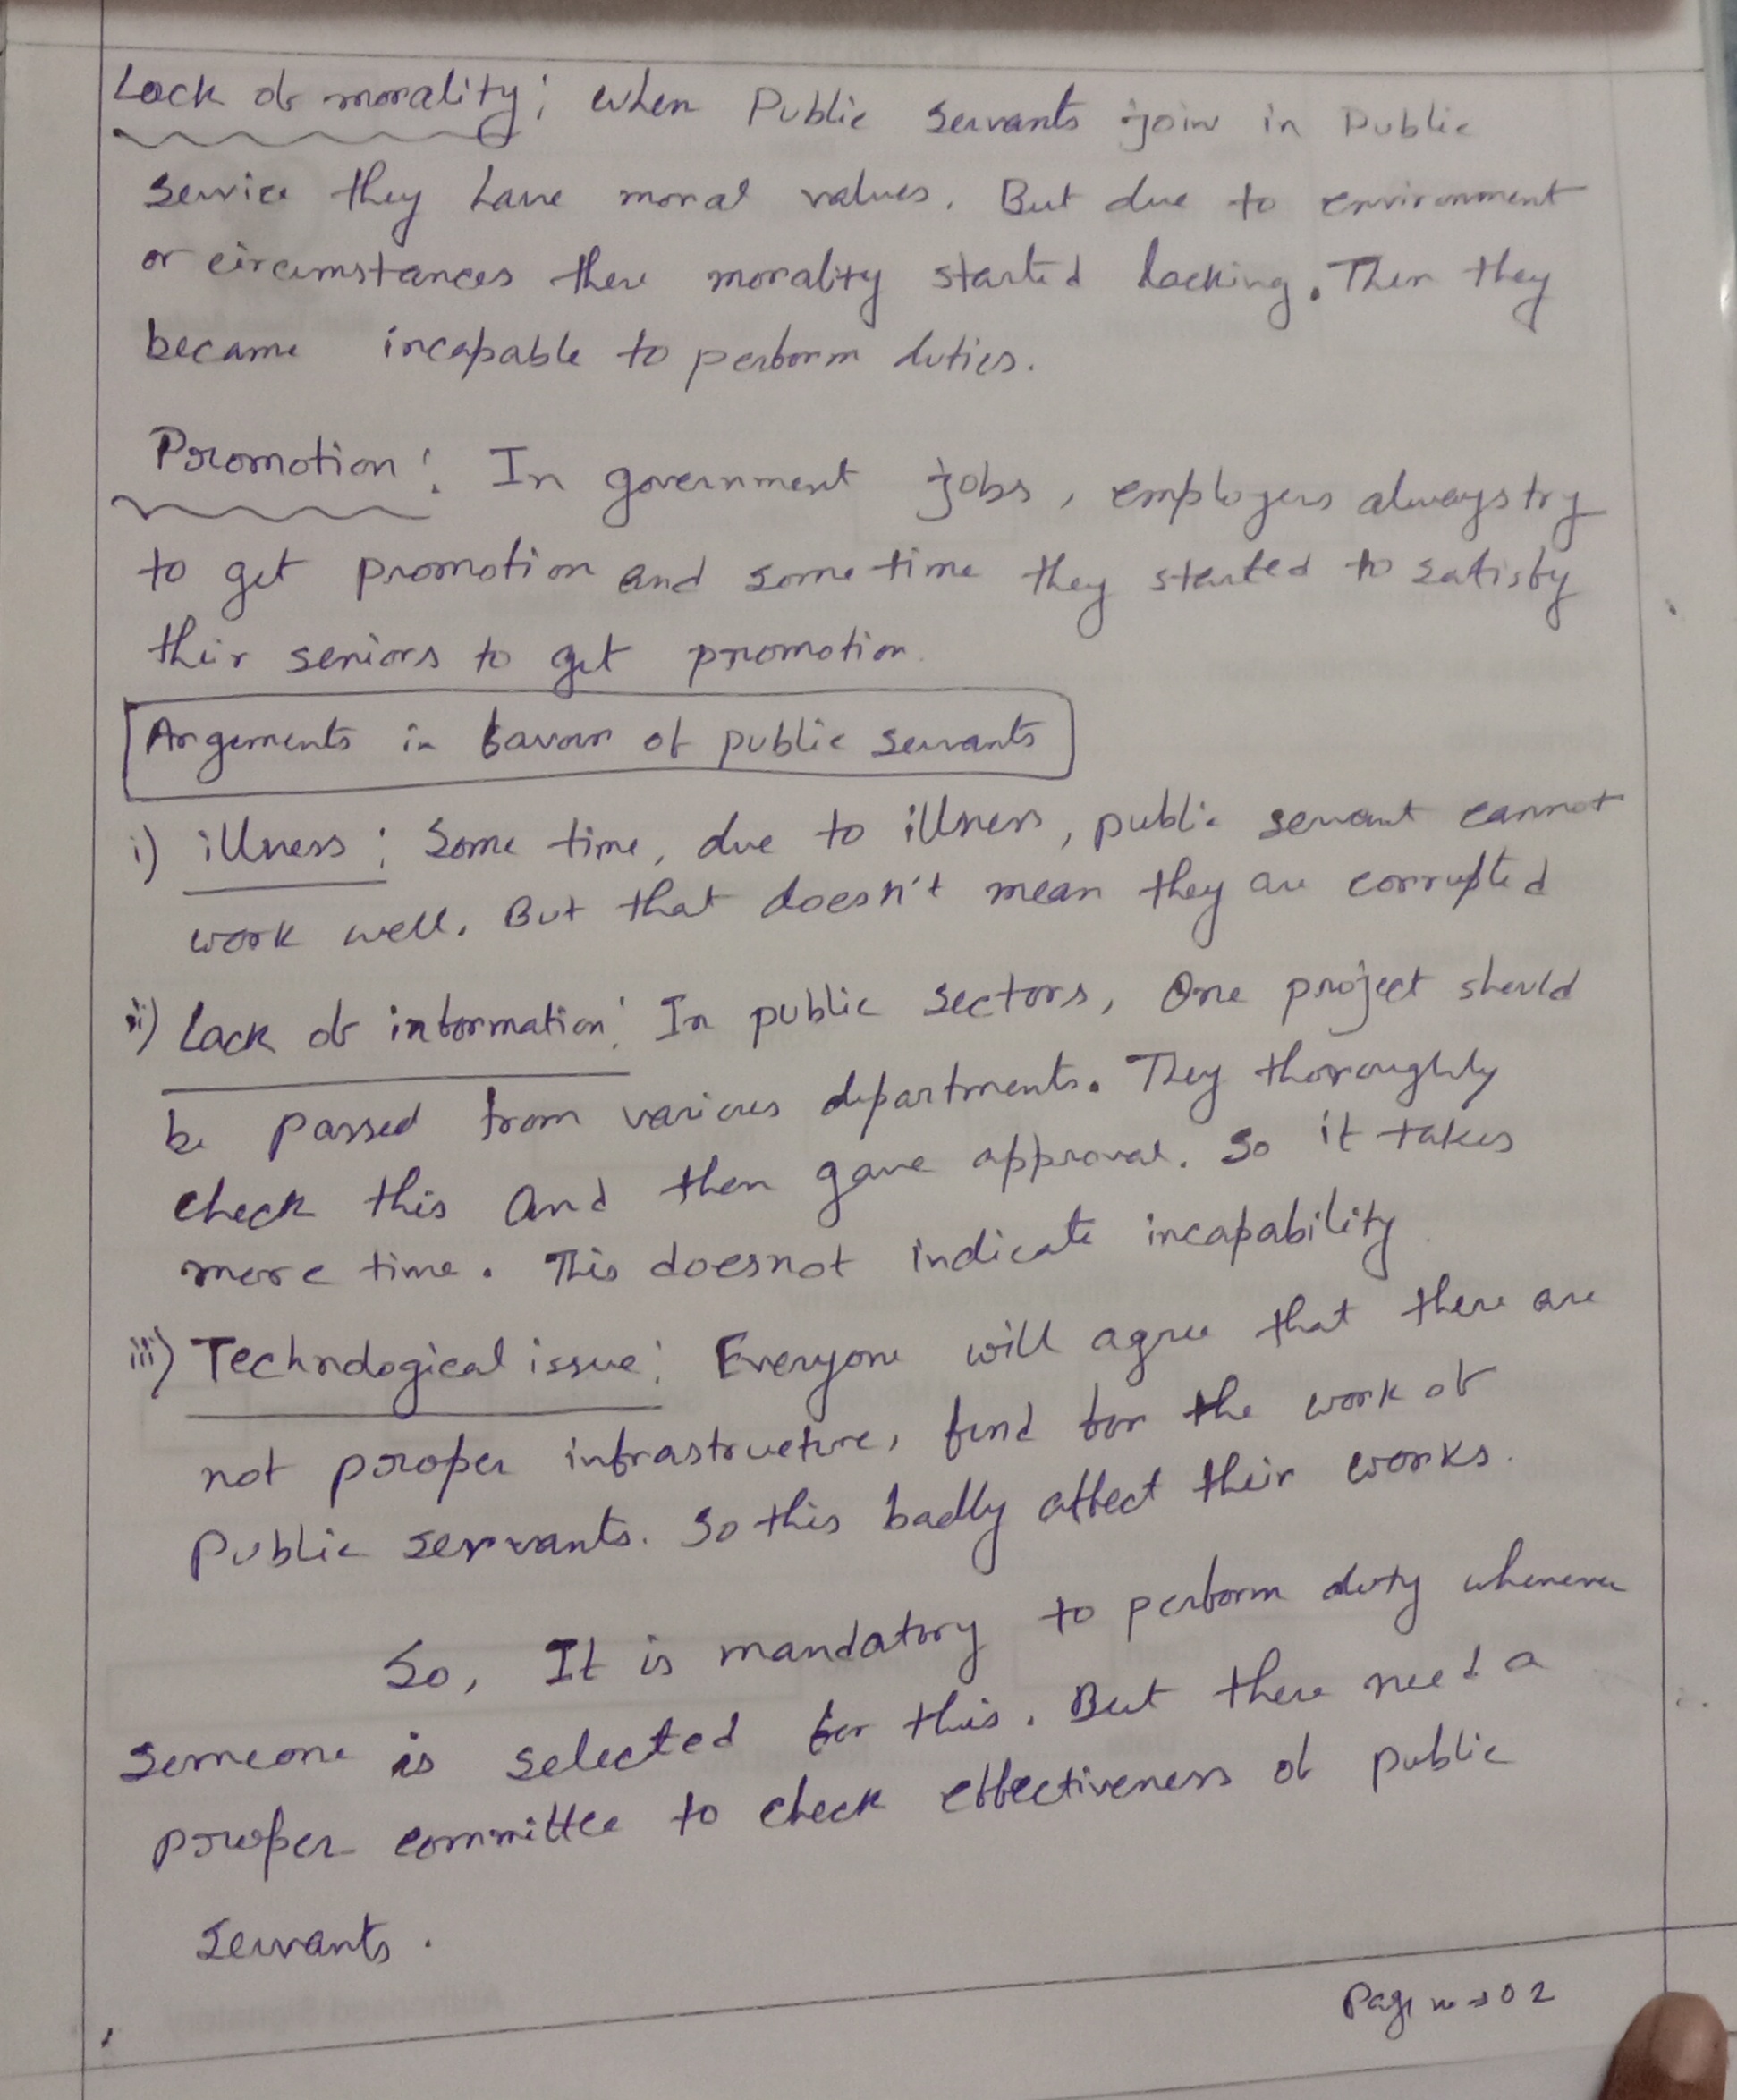 Lack of morality: when Public servants join in Public
service they have moral values. But due to environment
or circumstances there morality started lacking. Then they
became incapable to perform duties.
Promotion: In government jobs, employers always try
to get promotion and some time they started to satisfy
their seniors to get promotion.
Arguments in favour of public servants
i) illness: Some time, due to illness, public servant cannot
work well. But that doesn't mean they are corrupted
ii) Lack of information: In public sectors, One project should
be passed from various departments. They thoroughly
check this and then gave approval. So it takes
more time. This doesnot indicate incapability
iii) Technological issue: Everyone will agree that there are
not proper infrastructure, fund for the work of
Public servants. So this badly affect their works.
So, It is mandatory to perform duty whenever
someone is selected for this. But there need a
proper committee to check effectiveness of public
servants.
Page 02